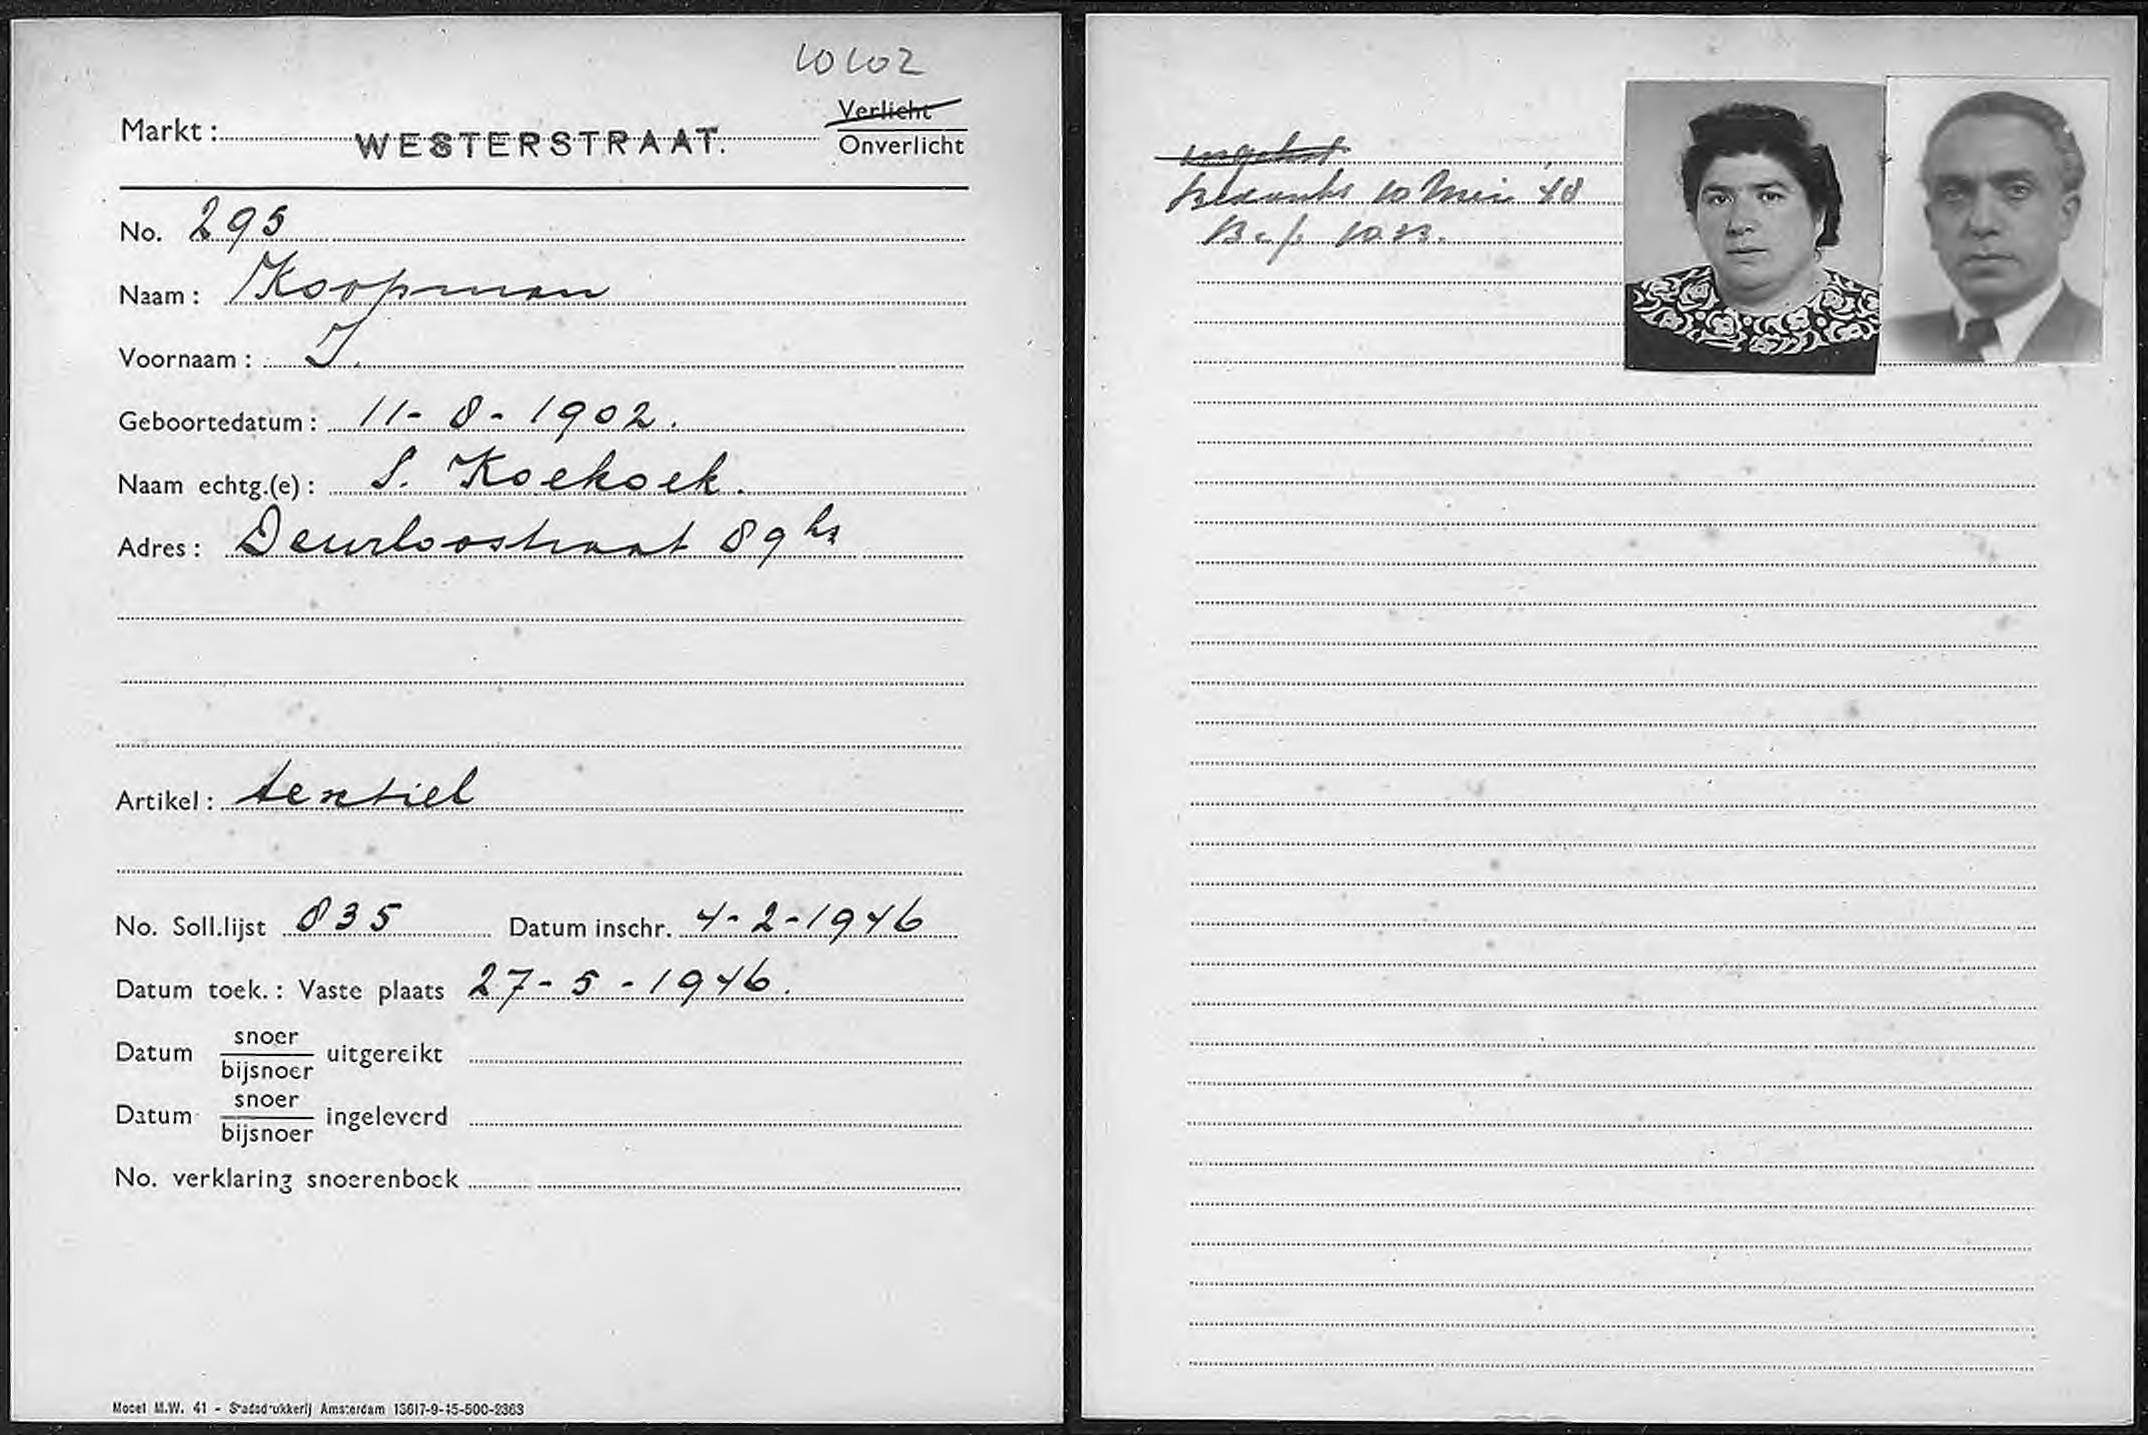 10102
Markt : WESTERSTRAAT. Verlicht
Onverlicht
No. 295
Naam : Koopman
Voornaam : I.
Geboortedatum : 11-8-1902.
Naam echtg.(e) : S. Koekoek.
Adres : Deurloostraat 89 hs
Artikel : textiel
No. Soll.lijst 835 Datum inschr. 4-2-1946
Datum toek. : Vaste plaats 27-5-1946.
Datum snoer/bijsnoer uitgereikt
Datum snoer/bijsnoer ingeleverd
No. verklaring snoerenboek
Model M.W. 41 - Stadsdrukkerij Amsterdam 13617-9-45-500-2363
10 Mei 48